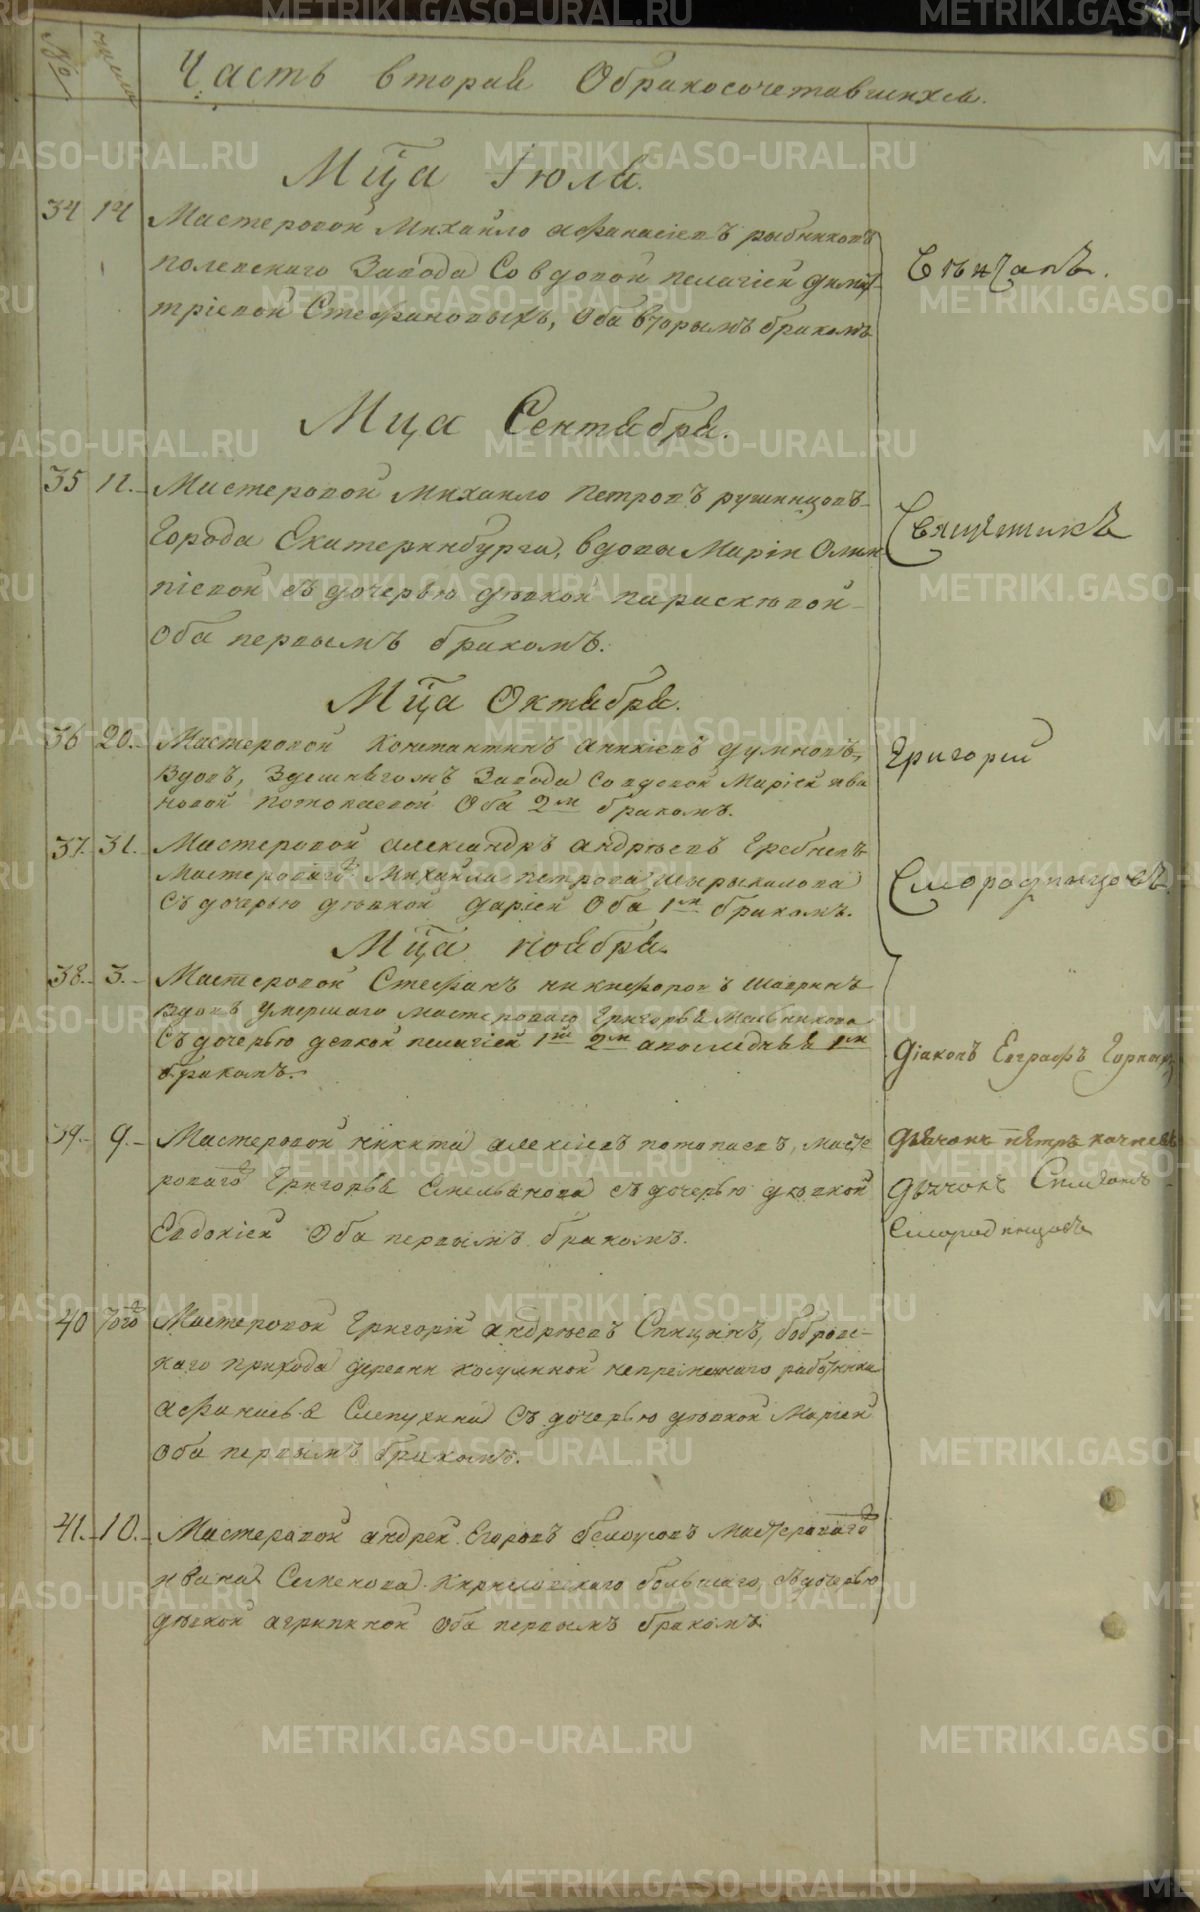 № число Часть вторая Обракосочетавшихся.
Мца Іюля.
34 14 Мастеровой Михайло Афанасіевъ рыбниковъ
полевскаго Завода Со вдовой пелагіей дими
тріевой Стефановыхъ, Оба вторымъ бракомъ
Венчалъ.
Мца Сентября.
35 12. Мастеровой Михайло Петровъ рушинцовъ
Города Екатеринбурга, вдовы Маріи Олим
піевой съ дочерью девкой параскевой
Оба первымъ бракомъ.
Священникъ
Мца Октября.
36 20. Мастеровой Константинъ аникіевъ думновъ,
Вдовъ, Здешнягожъ Завода со вдовой Маріей ива
новой потопаевой Оба 2м бракомъ.
Григорій
37. 31. Мастеровой александръ андреевъ Гребневъ
Мастероваго Михайла петрова шырыкалова
Съ дочерью девкой даріей Оба 1м бракомъ.
Смородинцовъ
Мца ноября.
38. 3. Мастеровой Стефанъ никифоровъ шавринъ
вдовъ умершаго мастероваго Григорья Мельникова
Съ дочерью девкой пелагіей 1й 2м апоследняя 1м
бракомъ.
Діаконъ Евграфъ
39. 9. Мастеровой никита алексіевъ потопаевъ, масте
роваго Григорья Емельянова съ дочерью девкой
Евдокіей Оба первымъ бракомъ.
Дьячокъ петръ
Дьячокъ Симеонъ
Смородинцовъ
40 Того Мастеровой Григорій андреевъ Спицинъ, бобровс-
каго прихода деревни косулиной непременнаго работника
афанасья Слепухина Съ дочерью девкой Маріей
Оба первымъ бракомъ.
41. 10. Мастеровой андрей Егоровъ белоусовъ Мастероваго
ивана Семенова Кириловскаго большаго, съ дочерью
девкой агрипиной Оба первымъ бракомъ.
METRIKI.GASO-URAL.RU